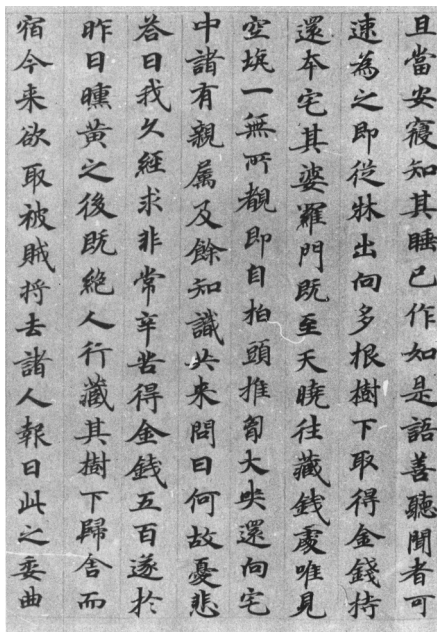 且當安寢知其睡已作如是語善聽聞者可
速為之即從牀出向多根樹下取得金錢持
還本宅其婆羅門既至天曉往藏錢處唯見
空埃一無所覩即自拍頭推匈大哭還向宅
中諸有親属及餘知識共来問曰何故憂悲
荅曰我久經求非常辛苦得金錢五百遂於
昨日曛黄之後既絶人行藏其樹下歸舍而
宿今来欲取被賊将去諸人報曰此之委曲